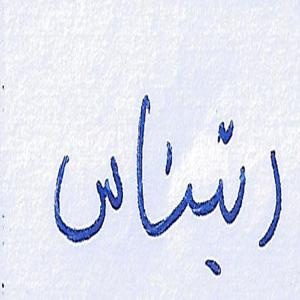 رتبناس